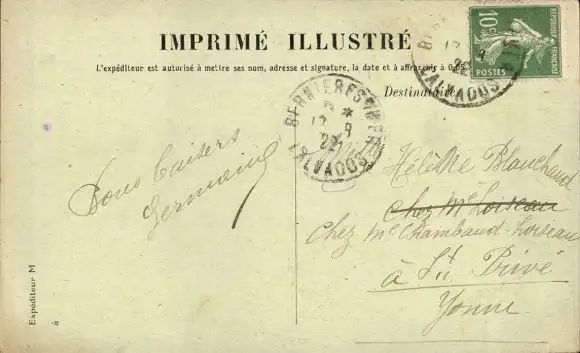 IMPRIMÉ ILLUSTRÉ
L'expéditeur est autorisé à mettre ses nom, adresse et signature, la date et à affranchir à 0.05
Destinataire
10c
RÉPUBLIQUE FRANÇAISE
POSTES
CALVADOS
22
BERNIERES
17 8
22
CALVADOS
Bons Baisers
Germaine
Hélène Blanchaud
Chez Me Loiseau
Chez Me Chambaud-Loiseau
à St Privé
Yonne
Expéditeur M
à